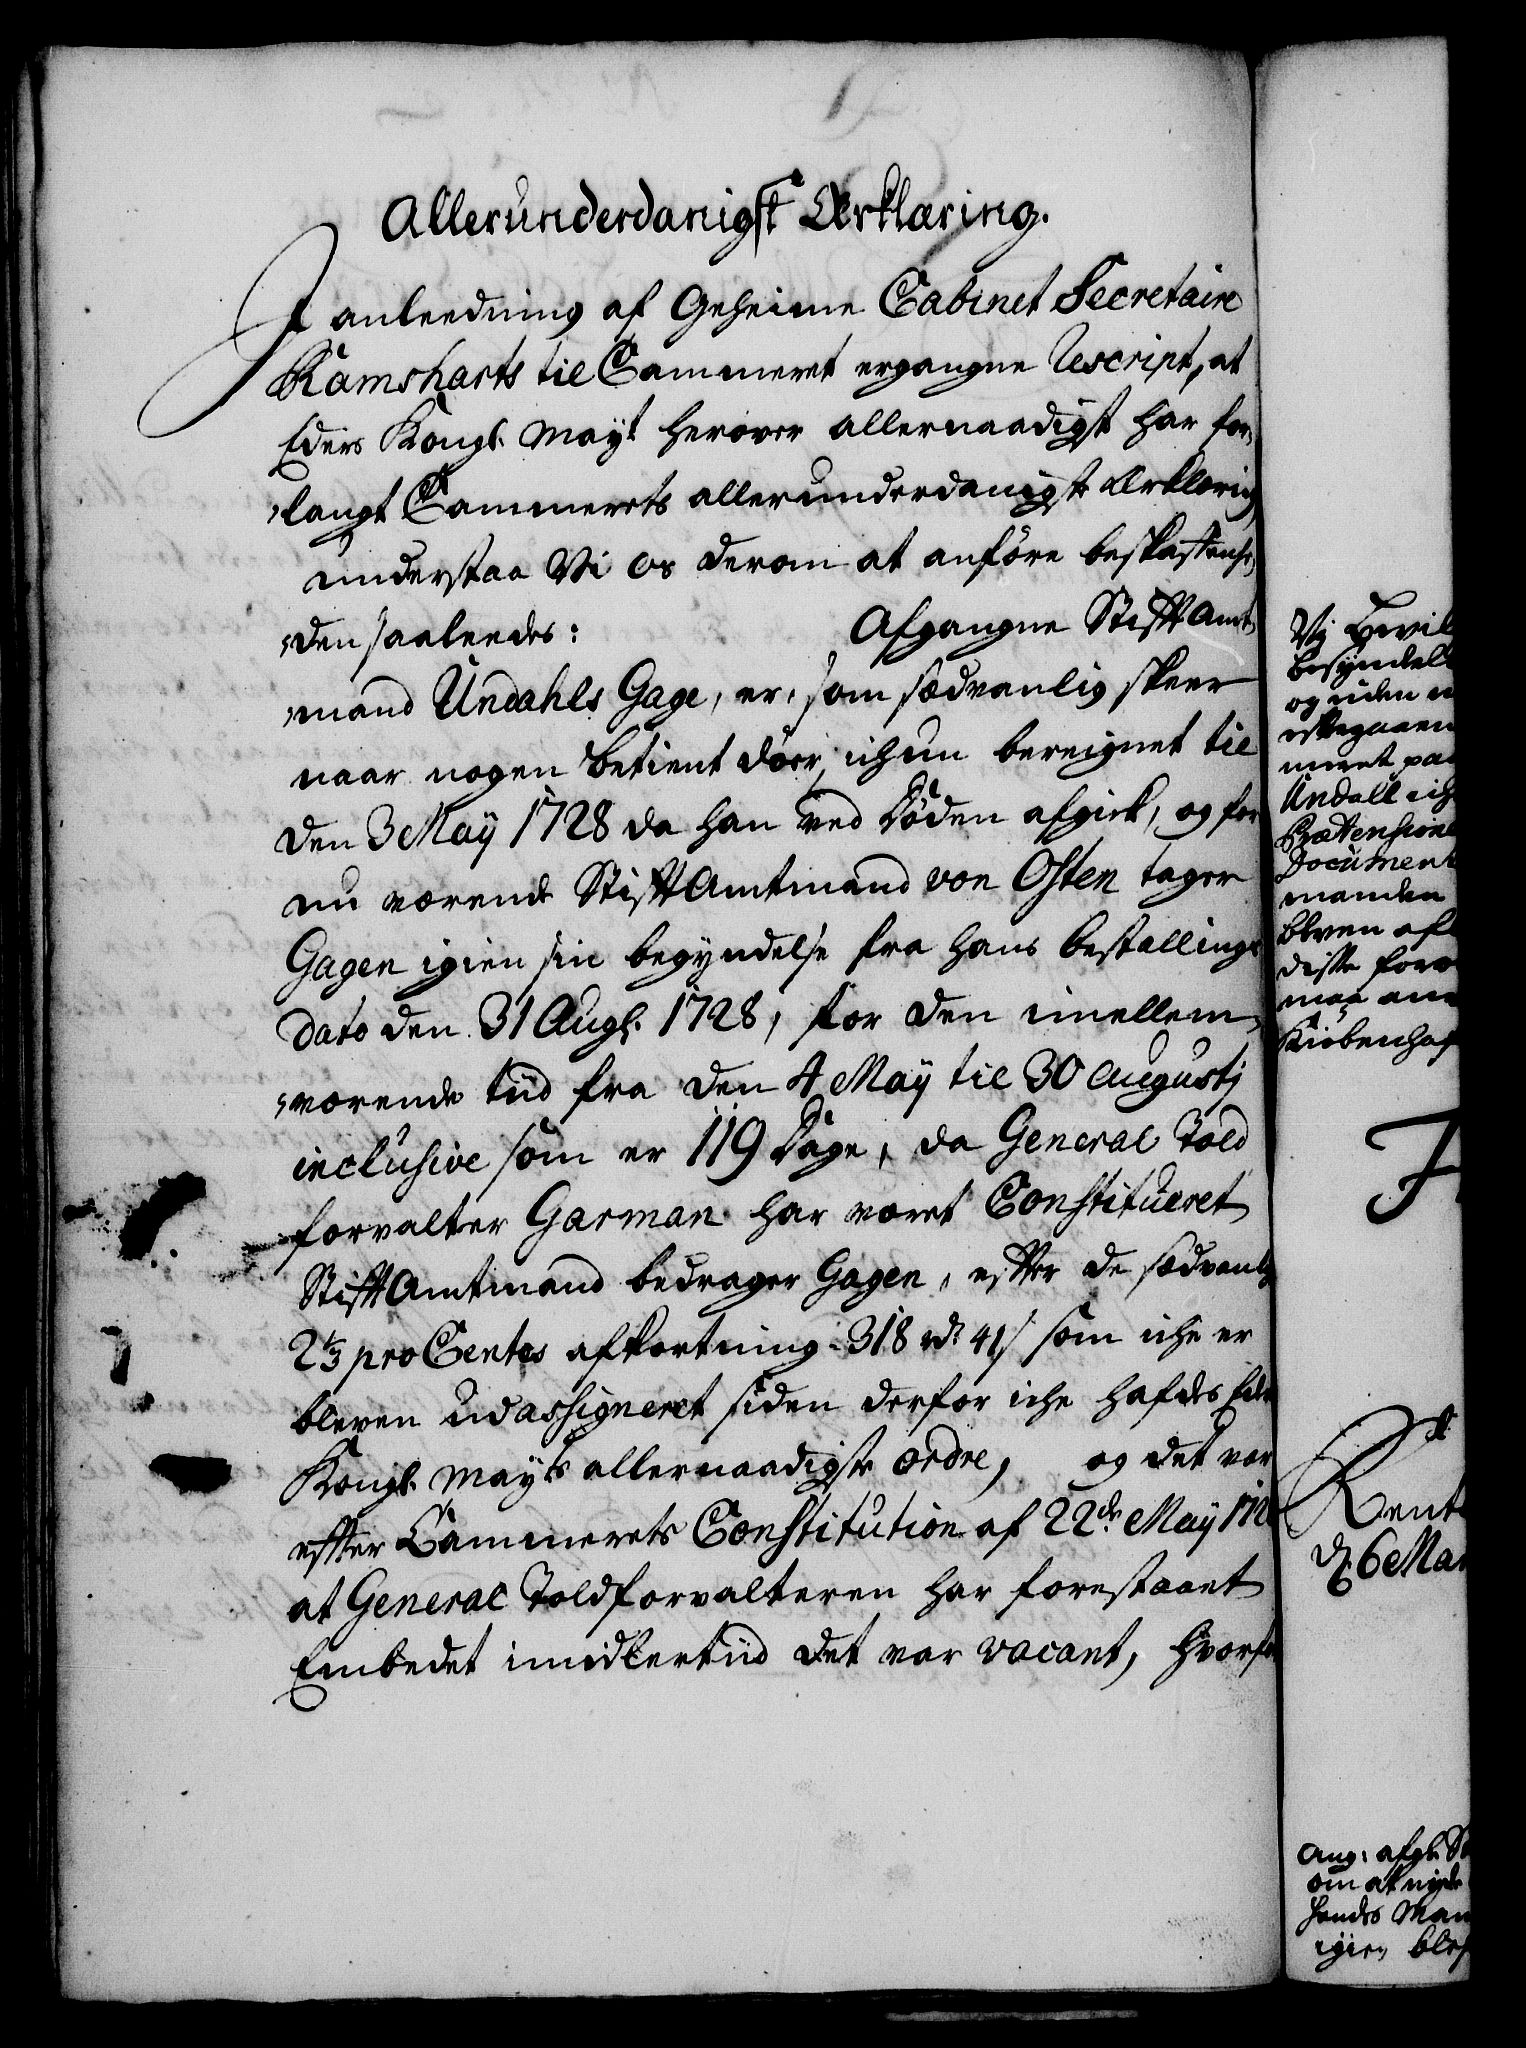 Allerunderdanigst Ærklæring.
I anleedning af Geheime Cabinet Secretaire
Ramsharts til Cammeret ergangne Rescript, at
Eders Kongl. Mayt herover allernaadigst har for-
langt Cammerets allerunderdanigste Ærklæring,
understaa Vi os derom at anföre beskaffenhe-
den saaleedes: Afgangne StiftAmt
mand Undahls Gage, er, som sædvanlig skeer
naar nogen Betient döer, ichun bereignet til
den 3 Maÿ 1728 da han ved Döden afgick, og for
nu værende StiftAmtmand von Osten tager
Gagen igien sin begyndelse fra hans bestallings
dato den 31 Aug. 1728, for den imellem-
værende tiid fra den 4 Maÿ til 30 Augustj
inclusive som er 119 Dage, da General Told
forvalter Garman har været Constitueret
StiftAmtmand bedrager Gagen, efter de sædvanlig
2⅓ pro Centos afkortning 318 rd. 41 s som iche er
bleven udassigneret siden derfor iche hafdes Eders
Kongl. Mayts allernaadigste ordre, og det var
efter Cammerets Constitution af 22de Maÿ 172
at General Toldforvalteren har forestaaet
Embedet imidlertiid det var vacant, hvorfor
Vj
besyndel
og uden
Undall ich
Prætension
Document
manden
bleven af
diste forr
maa
Kiöbenhaf
F
Rent
d. 6 Mar
Ang: afgl. St
om at nyde
hendes Man
igien